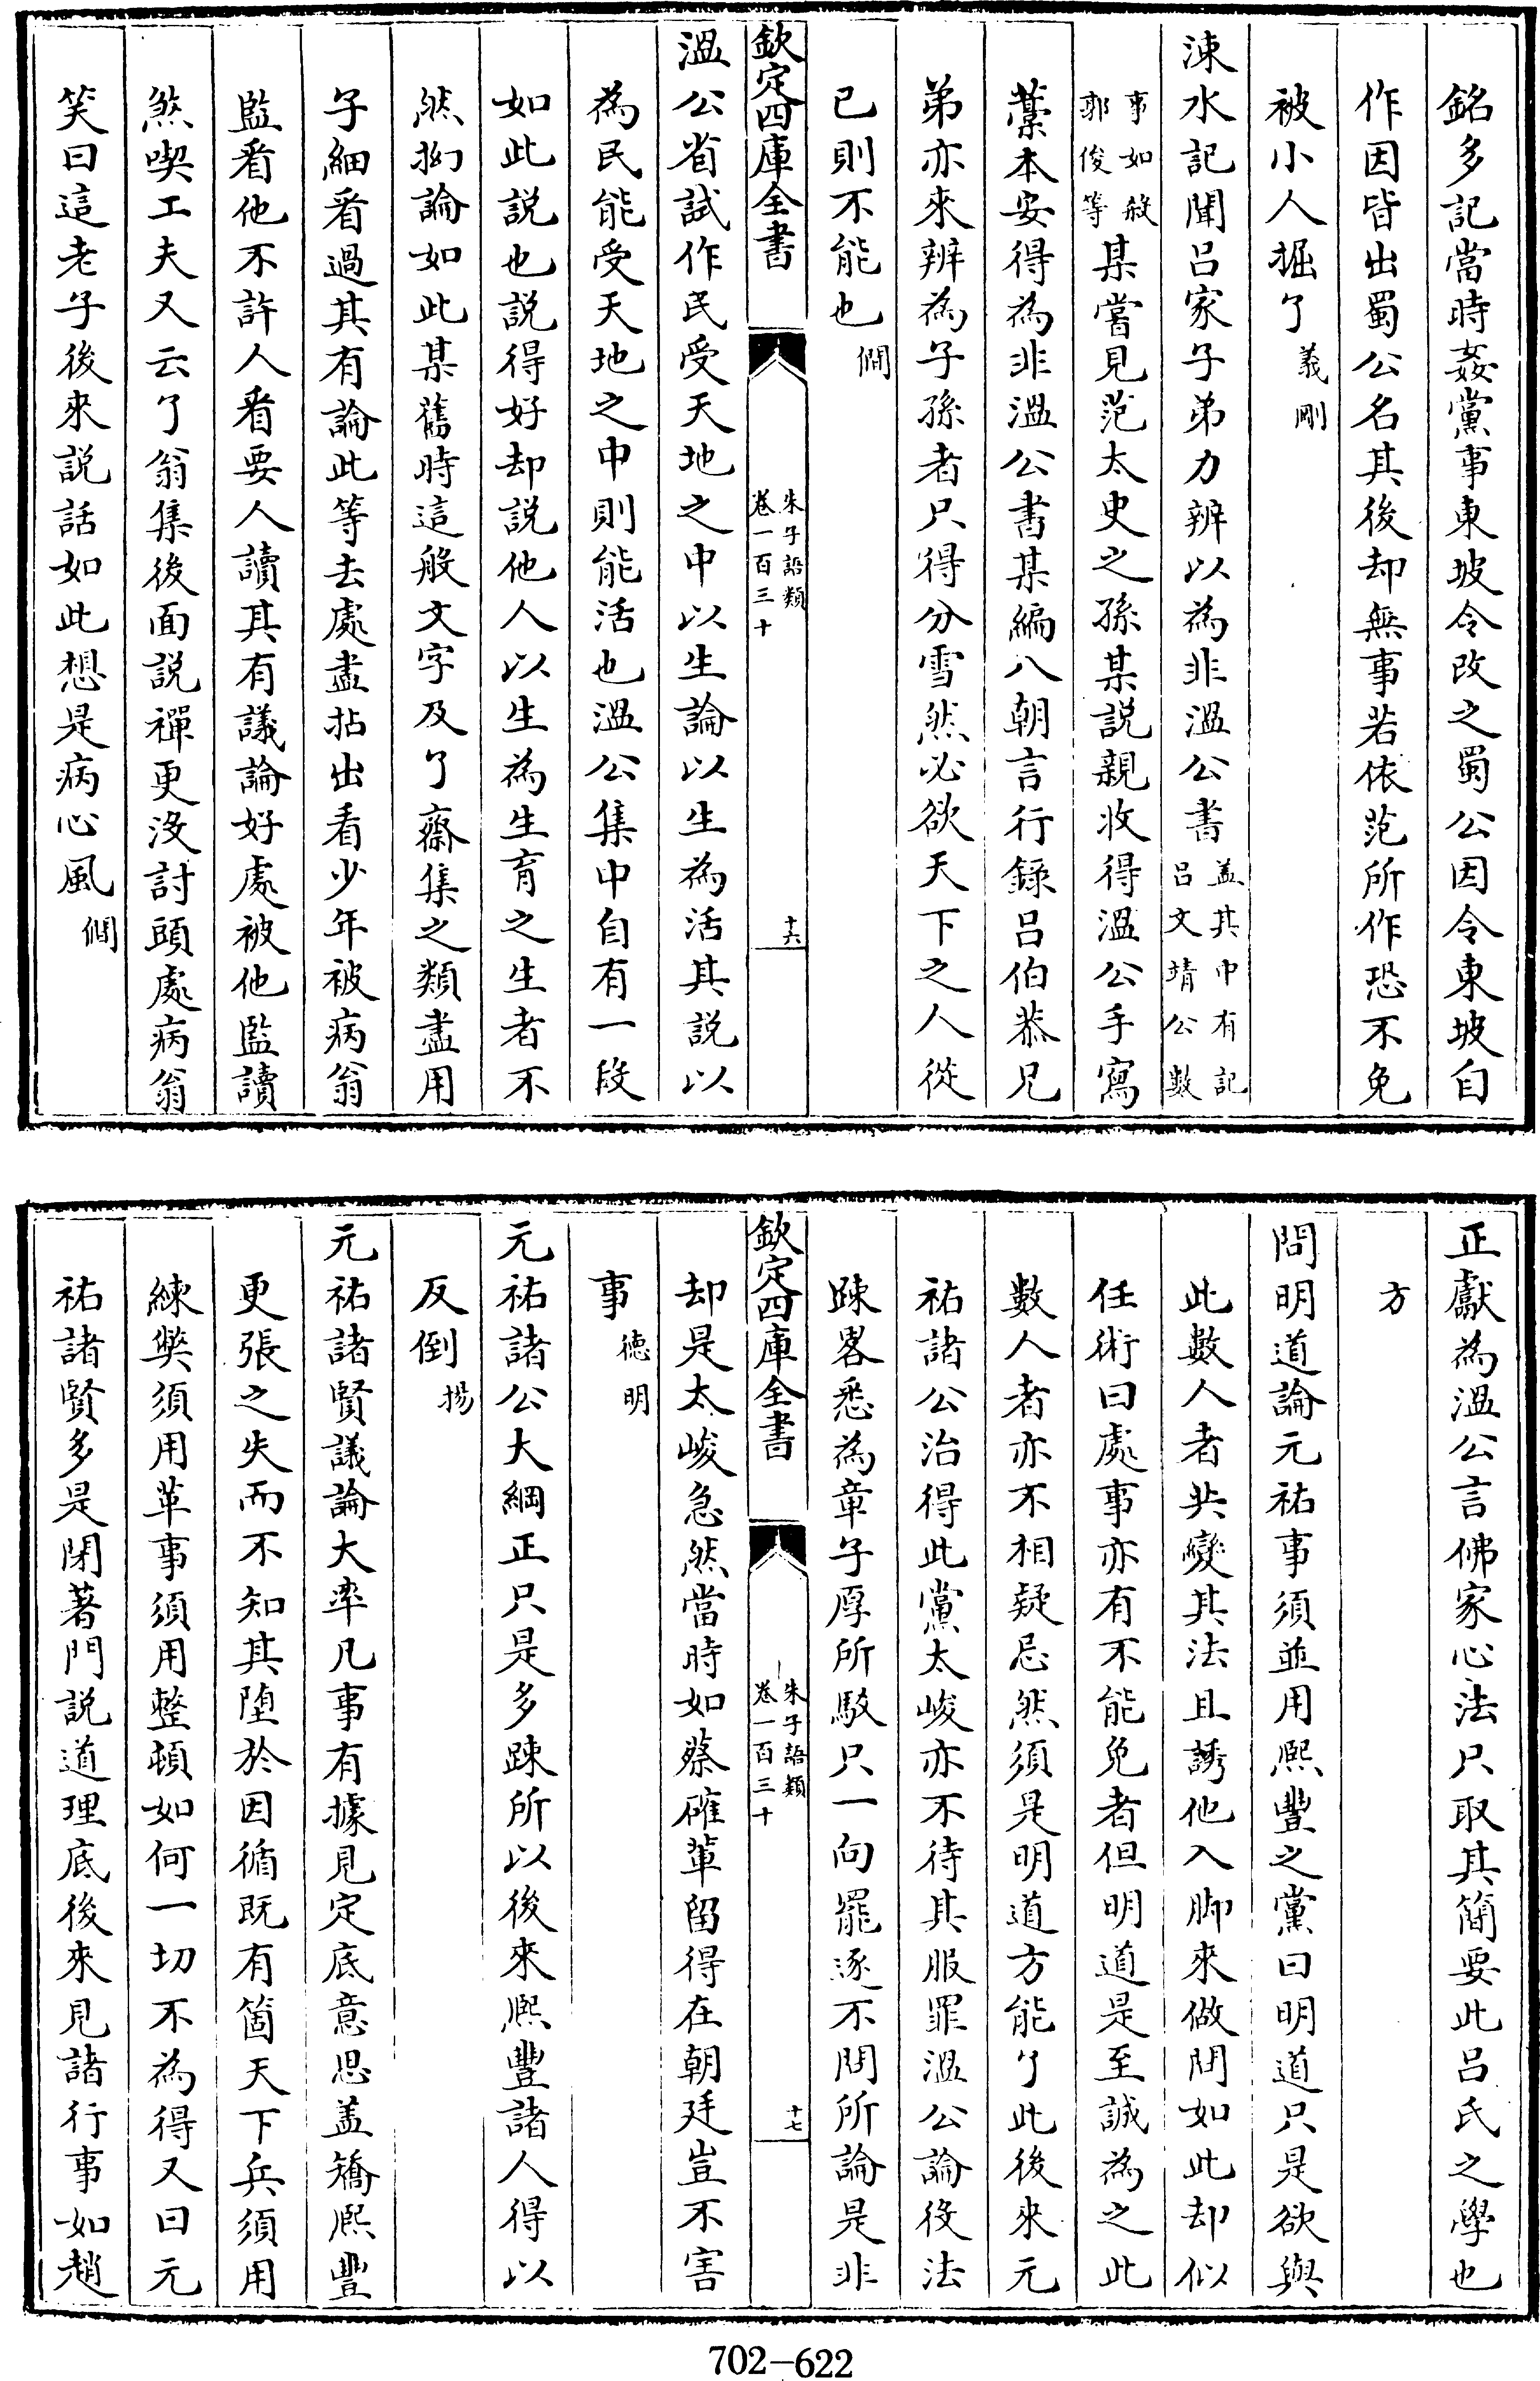 銘多記當時姦黨事東坡令改之蜀公因令東坡自
作因皆出蜀公名其後却無事若依范所作恐不免
被小人掘了義剛
涑水記聞呂家子弟力辨以為非溫公書盖其中有記呂文靖公數
事如殺郭后等某嘗見范太史之孫某說親收得溫公手寫
藁本安得為非溫公書某編八朝言行錄呂伯恭兄
弟亦來辨為子孫者只得分雪然必欲天下之人從
已則不能也僩
欽定四庫全書
朱子語類
卷一百三十
十六
溫公省試作民受天地之中以生論以生為活其說以
為民能受天地之中則能活也溫公集中自有一段
如此說也說得好却說他人以生為生育之生者不
然拗論如此某舊時這般文字及了齋集之類盡用
子細看過其有論此等去處盡拈出看少年被病翁
監看他不許人看要人讀其有議論好處被他監讀
煞喫工夫又云了翁集後面說禪更沒討頭處病翁
笑曰這老子後來說話如此想是病心風僩
正獻為溫公言佛家心法只取其簡要此呂氏之學也
方
問明道論元祐事須並用熙豐之黨曰明道只是欲與
此數人者共變其法且誘他入脚來做問如此却似
任術曰處事亦有不能免者但明道是至誠為之此
數人者亦不相疑忌然須是明道方能了此後來元
祐諸公治得此黨太峻亦不待其服罪溫公論役法
踈畧悉為章子厚所駁只一向罷逐不問所論是非
欽定四庫全書
朱子語類
卷一百三十
十七
却是太峻急然當時如蔡確輩留得在朝廷豈不害
事德明
元祐諸公大綱正只是多踈所以後來熙豐諸人得以
反倒揚
元祐諸賢議論大率凡事有據見定底意思盖矯熙豐
更張之失而不知其墮於因循既有箇天下兵須用
練獘須用革事須用整頓如何一切不為得又曰元
祐諸賢多是閉著門說道理底後來見諸行事如趙
702-622